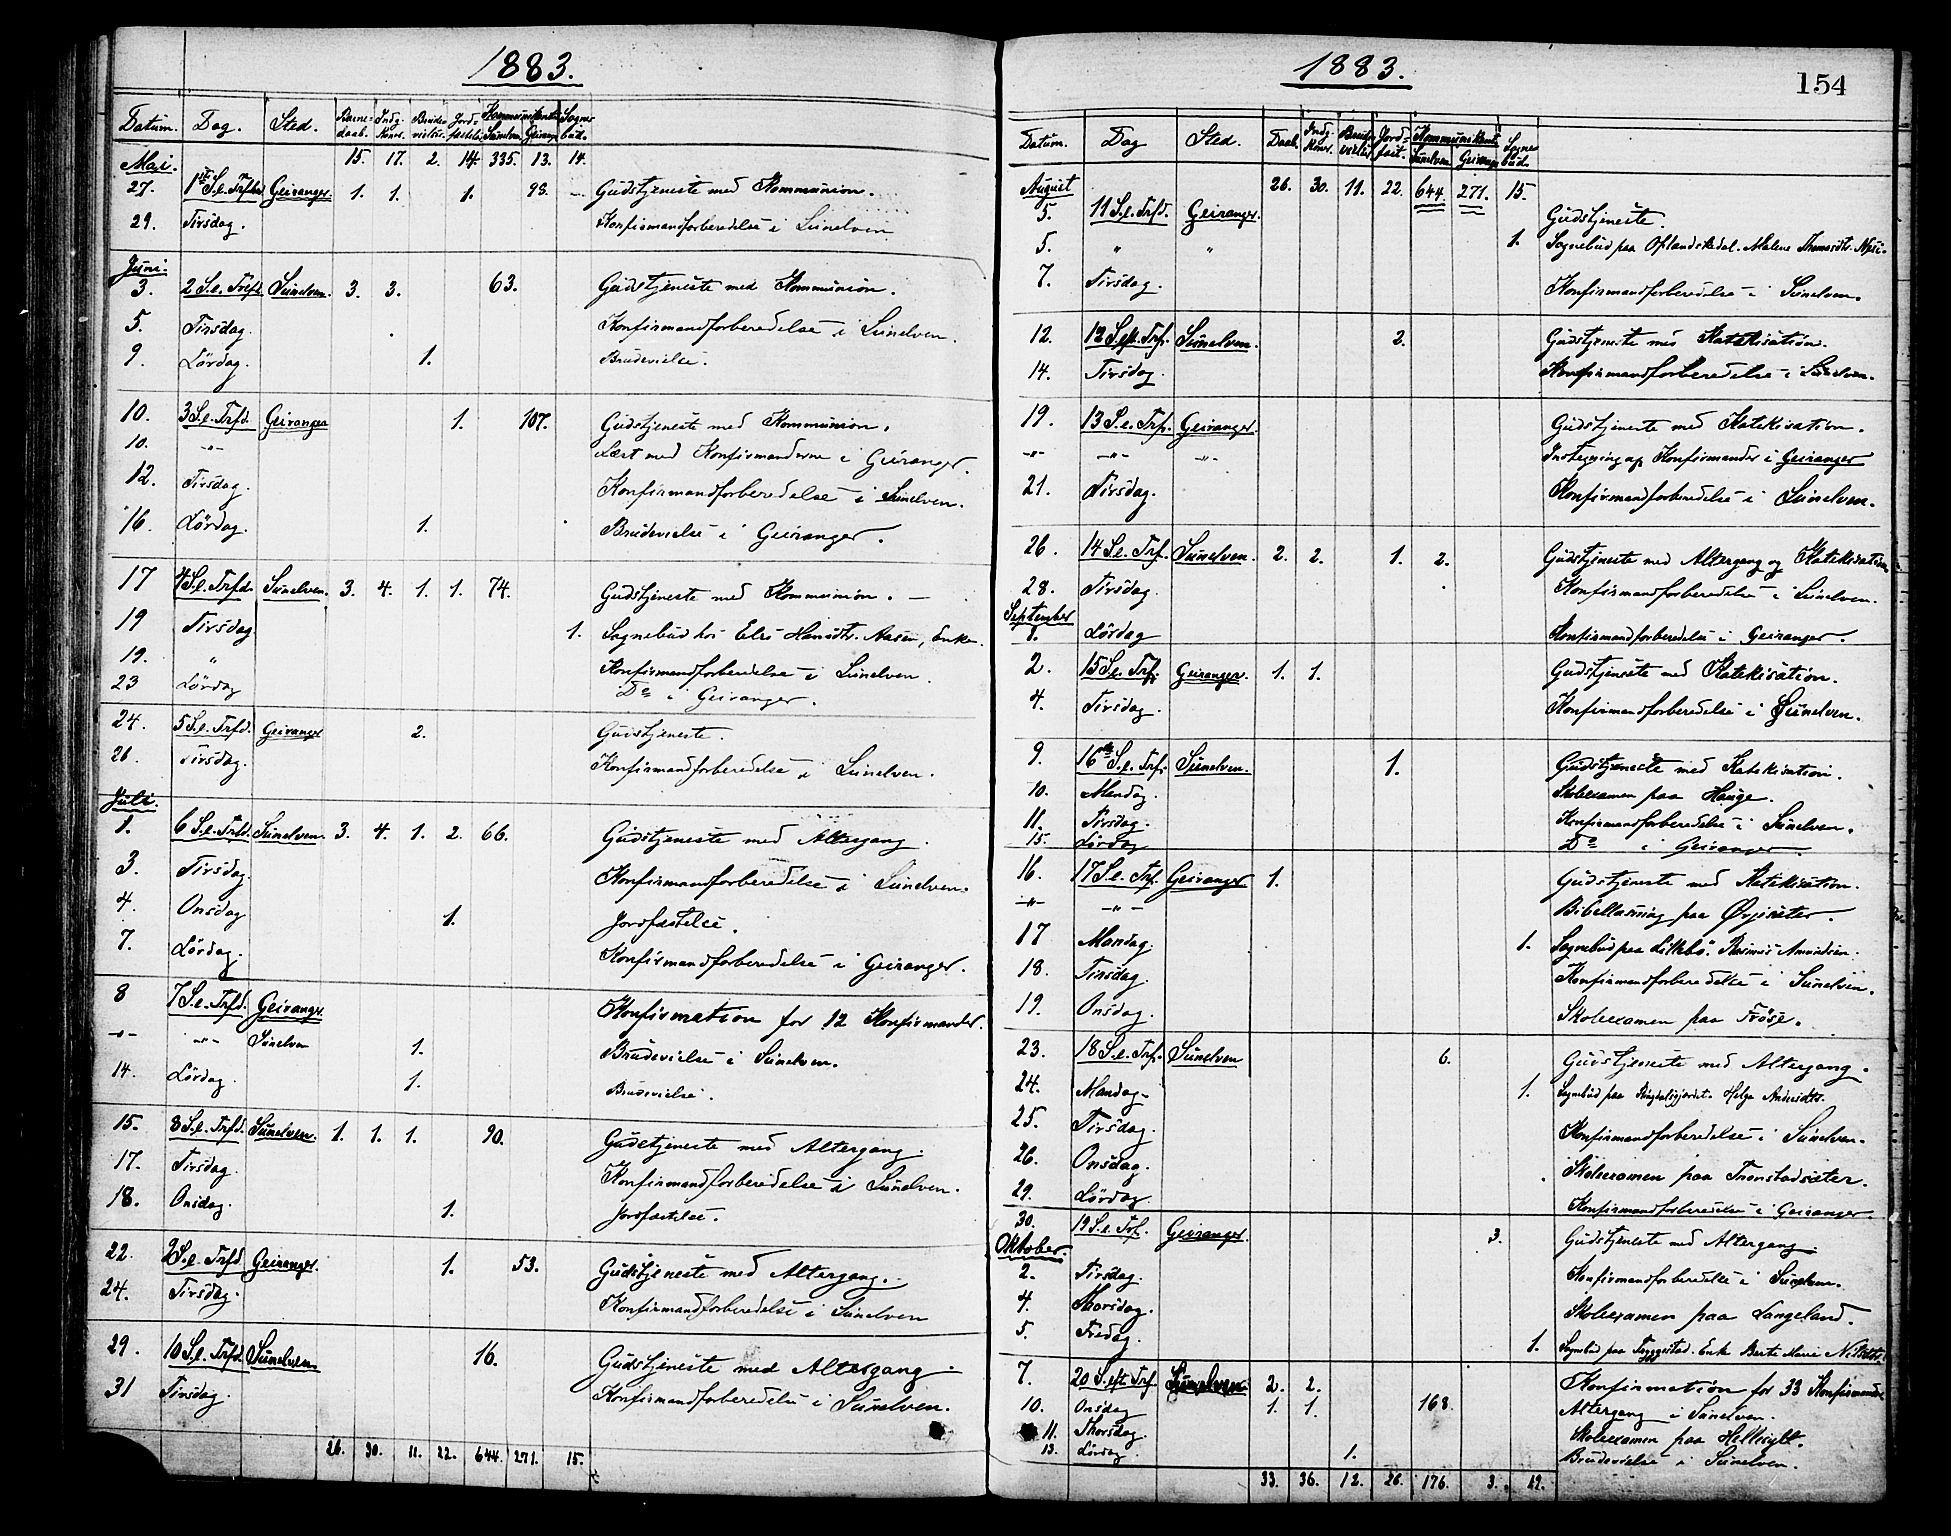 1883.
Datum. Dag. Sted. Barne-daab. Indg. Konr. Brude-vielse. Jords-fæstelse Kommunikanter Sunelven Geiranger Sogne-bud.
15. 17. 2. 14. 335. 13. 14.
Mai.
27. 1ste S.e. Trfbd Geiranger. 1. 1. 1. 98. — Gudstjeneste med Kommunion.
29. Tirsdag. Konfirmandforberedelse i Sunelven
Juni.
3. 2 S.e. Trefd Sunelven. 3. 3. 63. Gudstjeneste med Kommunion.
5. Tirsdag. Konfirmandforberedelse i Sunelven.
9. Lördag. 1. Brudevielse.
10. 3 S.e. Trfd. Geiranger 1. 107. Gudstjeneste med Kommunion.
10. -"- Læst med Konfirmanderne i Geiranger.
12. Tirsdag. Konfirmandforberedelse i Sunelven.
16. Lördag. 1. Brudevielse i Geiranger.
17 4 S.e. Trfd. Sunelven. 3. 4. 1. 1. 74. Gudstjeneste med Kommunion. —
19 Tirsdag 1. Sognebud hos Else Hansdtr. Aasen, Enke.
19. " Konfirmandforberedelse i Sunelven.
23 Lördag Do i Geiranger.
24. 5 S.e. Trfd. Geiranger 2. Gudstjeneste.
26. Tirsdag. Konfirmandforberedelse i Sunelven.
Juli.
1. 6 S.e. Trfd. Sunelven. 3. 4. 1. 2. 66. Gudstjeneste med Altergang.
3. Tirsdag. Konfirmandforberedelse i Sunelven.
4. Onsdag 1. Jordfæstelse.
7. Lördag. Konfirmandforberedelse i Geiranger.
8 7 S.e. Trfd. Geiranger Konfirmation for 12 Konfirmander.
-"- -"- Sunelven 1. Brudevielse i Sunelven.
14. Lördag. 1. Brudevielse.
15. 8 S.e. Trfd. Sunelven. 1. 1. 1. 90. Gudstjeneste med Altergang.
17. Tirsdag. Konfirmandforberedelse i Sunelven.
18. Onsdag. 1. Jordfæstelse.
22. 9 S.e. Trfd Geiranger. 1. 53. Gudstjeneste med Altergang.
24. Tirsdag. Konfirmandforberedelse i Sunelven
29. 10 S.e. Trfd. Sunelven 16. Gudstjeneste med Altergang.
31 Tirsdag. Konfirmandforberedelse i Sunelven.
26. 30. 11. 22. 644. 271. 15.
1883.
154
Datum. Dag Sted. Daab. Indg. Konr. Brude-vielse Jord-fæst. Kommunikanter Sunelven Geiranger Sogne-bud.
26. 30. 11. 22. 644. 271. 15.
August
5. 11 S.e. Trfd. Geiranger. Gudstjeneste.
5. " " 1. Sognebud paa Oplandskedal. Malene Thomasdtr.
7. Tirsdag. Konfirmandforberedelse i Sunelven.
12. 12 S.eft. Trf. Sunelven. 2. Gudstjeneste med Katekisation.
14. Tirsdag. Konfirmandforberedelse i Sunelven.
19. 13 S.e. Trf. Geiranger Gudstjeneste med Katekisation.
-"- -"- -"- Indtegning af Konfirmander i Geiranger
21. Tirsdag. Konfirmandforberedelse i Sunelven.
26. 14 S.e. Trf. Sunelven. 2. 2. 1. 2. Gudstjeneste med Altergang og Katekisation
28. Tirsdag. Konfirmandforberedelse i Sunelven.
September
1. Lördag Konfirmandforberedelse i Geiranger.
2. 15 S.e. Trf. Geiranger. 1. 1. Gudstjeneste med Katekisation.
4. Tirsdag. Konfirmandforberedelse i Sunelven.
9. 16de S.e. Trf. Sunelven. 1. Gudstjeneste med Katekisation.
10. Mandag. Skoleexamen paa Hauge.
11. Tirsdag. Konfirmandforberedelse i Sunelven.
15. Lördag Do i Geiranger.
16. 17 S.e. Trf. Geiranger 1. Gudstjeneste med Katekisation.
-"- -"- Bibellæsning paa
17 Mandag. 1. Sognebud paa Lilkbö. Rasmus Amundsen.
18. Tirsdag. Konfirmandforberedelse i Sunelven.
19. Onsdag. Skoleexamen paa Fröse.
23. 18 S.e. Trf. Sunelven 6. Gudstjeneste med Altergang.
24. Mandag. 1. Sognebud paa Helge
25. Tirsdag. Konfirmandforberedelse i Sunelven.
26. Onsdag. Skoleexamen paa Tronstadsæter.
29. Lördag. Konfirmandforberedelse i Geiranger.
30. 19 S.e. Trf. Geiranger. 3. Gudstjeneste med Altergang.
Oktober.
2. Tirsdag. Konfirmandforberedelse i Sunelven.
4. Thorsdag. Skoleexamen paa Langeland.
5. Fredag. 1. Sognebud paa Tryggestad. Enke Berte Marie Nilsdtr.
7. 20 S.eft. Trf. Sunelven 2. 2. Konfirmation for 33 Konfirmander
10. Onsdag 1. 1. 168. Altergang i Sunelven.
11. Thorsdag. Skoleexamen paa Hellesylt.
13. Lördag. 1. Brudevielse i Sunelven.
33. 36. 12. 26. 176. 3. 12.